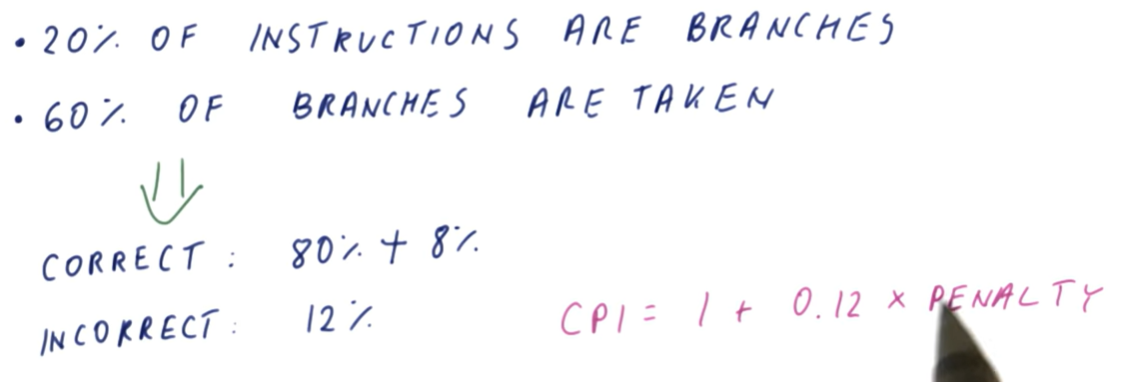 • 20% OF INSTRUCTIONS ARE BRANCHES
• 60% OF BRANCHES ARE TAKEN
CORRECT : 80% + 8%
INCORRECT : 12%
CPI = 1 + 0.12 × PENALTY